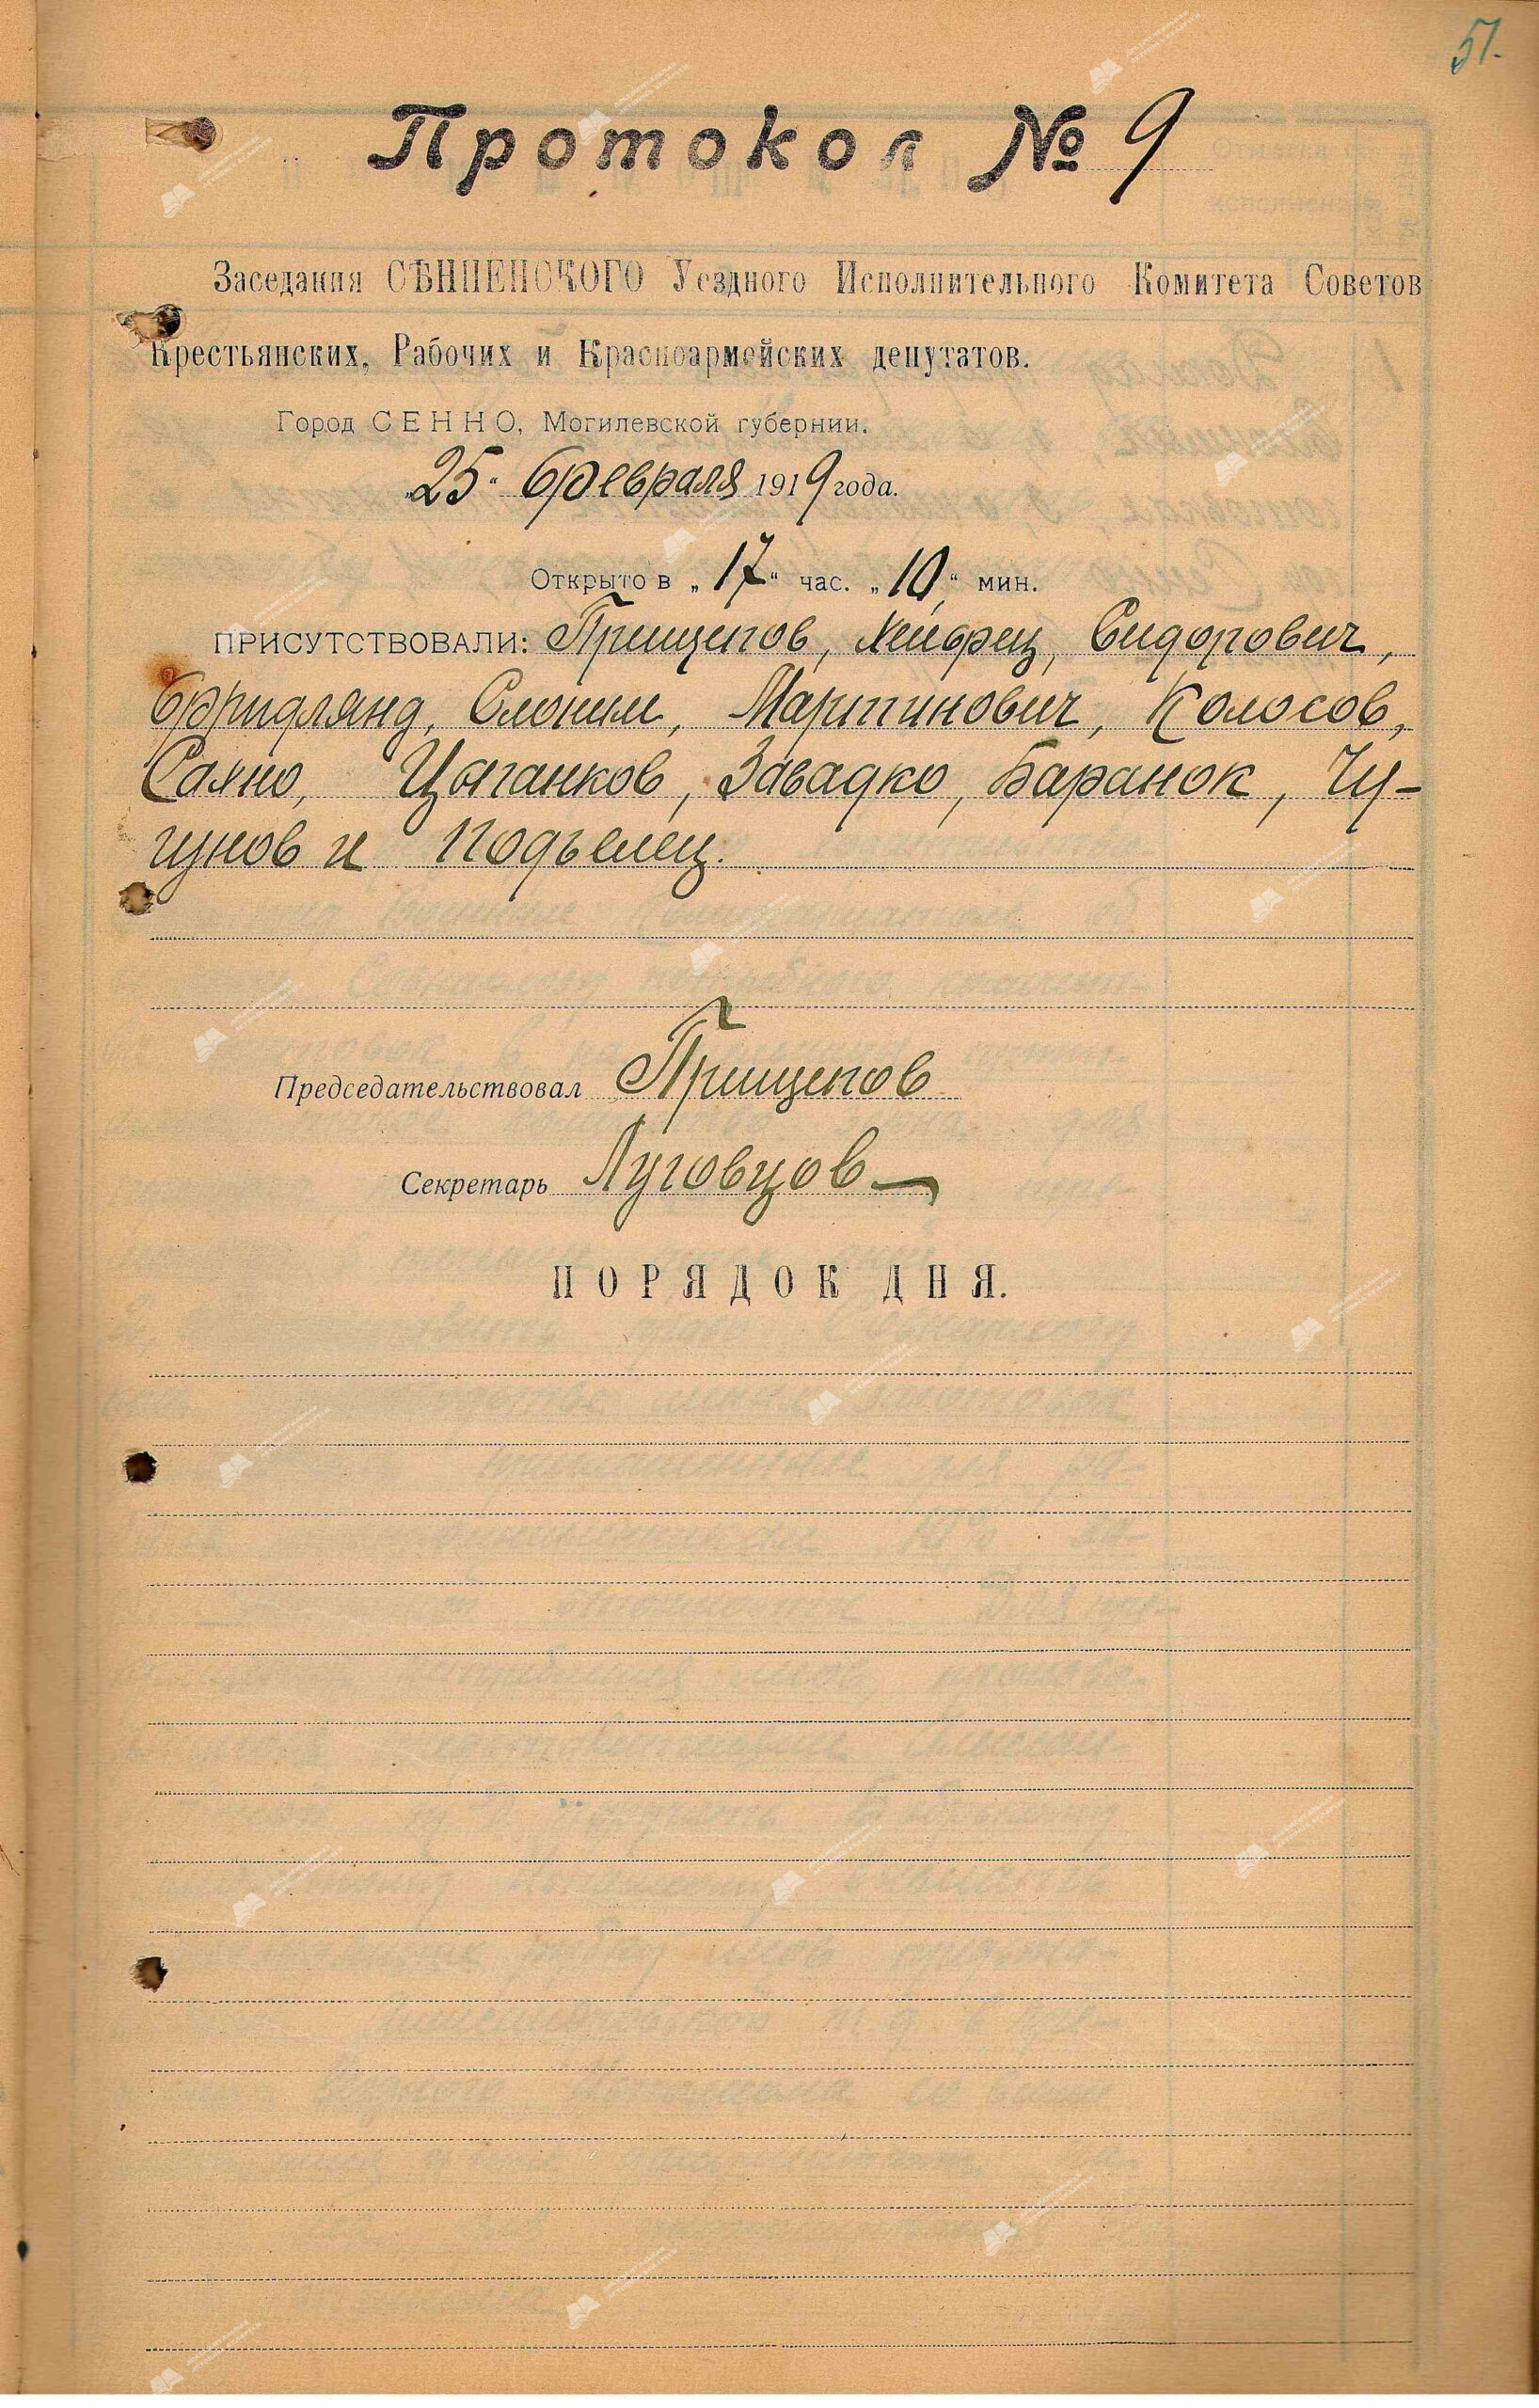 51.
Протокол № 9
Заседания СѢННЕНСКОГО Уездного Исполнительного Комитета Советов
Крестьянских, Рабочих и Красноармейских депутатов.
Город СЕННО, Могилевской губернии.
„25“ февраля 1919 года.
Открыто в „17“ час. „10“ мин.
ПРИСУТСТВОВАЛИ: Прищепов, Хейфец, Сидорович,
Фридлянд, Слоним, Мартинович, Колосов,
Сахно, Цыганков, Завадко, Баранок, Чу-
гунов и Подъелец.
Председательствовал Прищепов
Секретарь Луговцов
ПОРЯДОК ДНЯ.